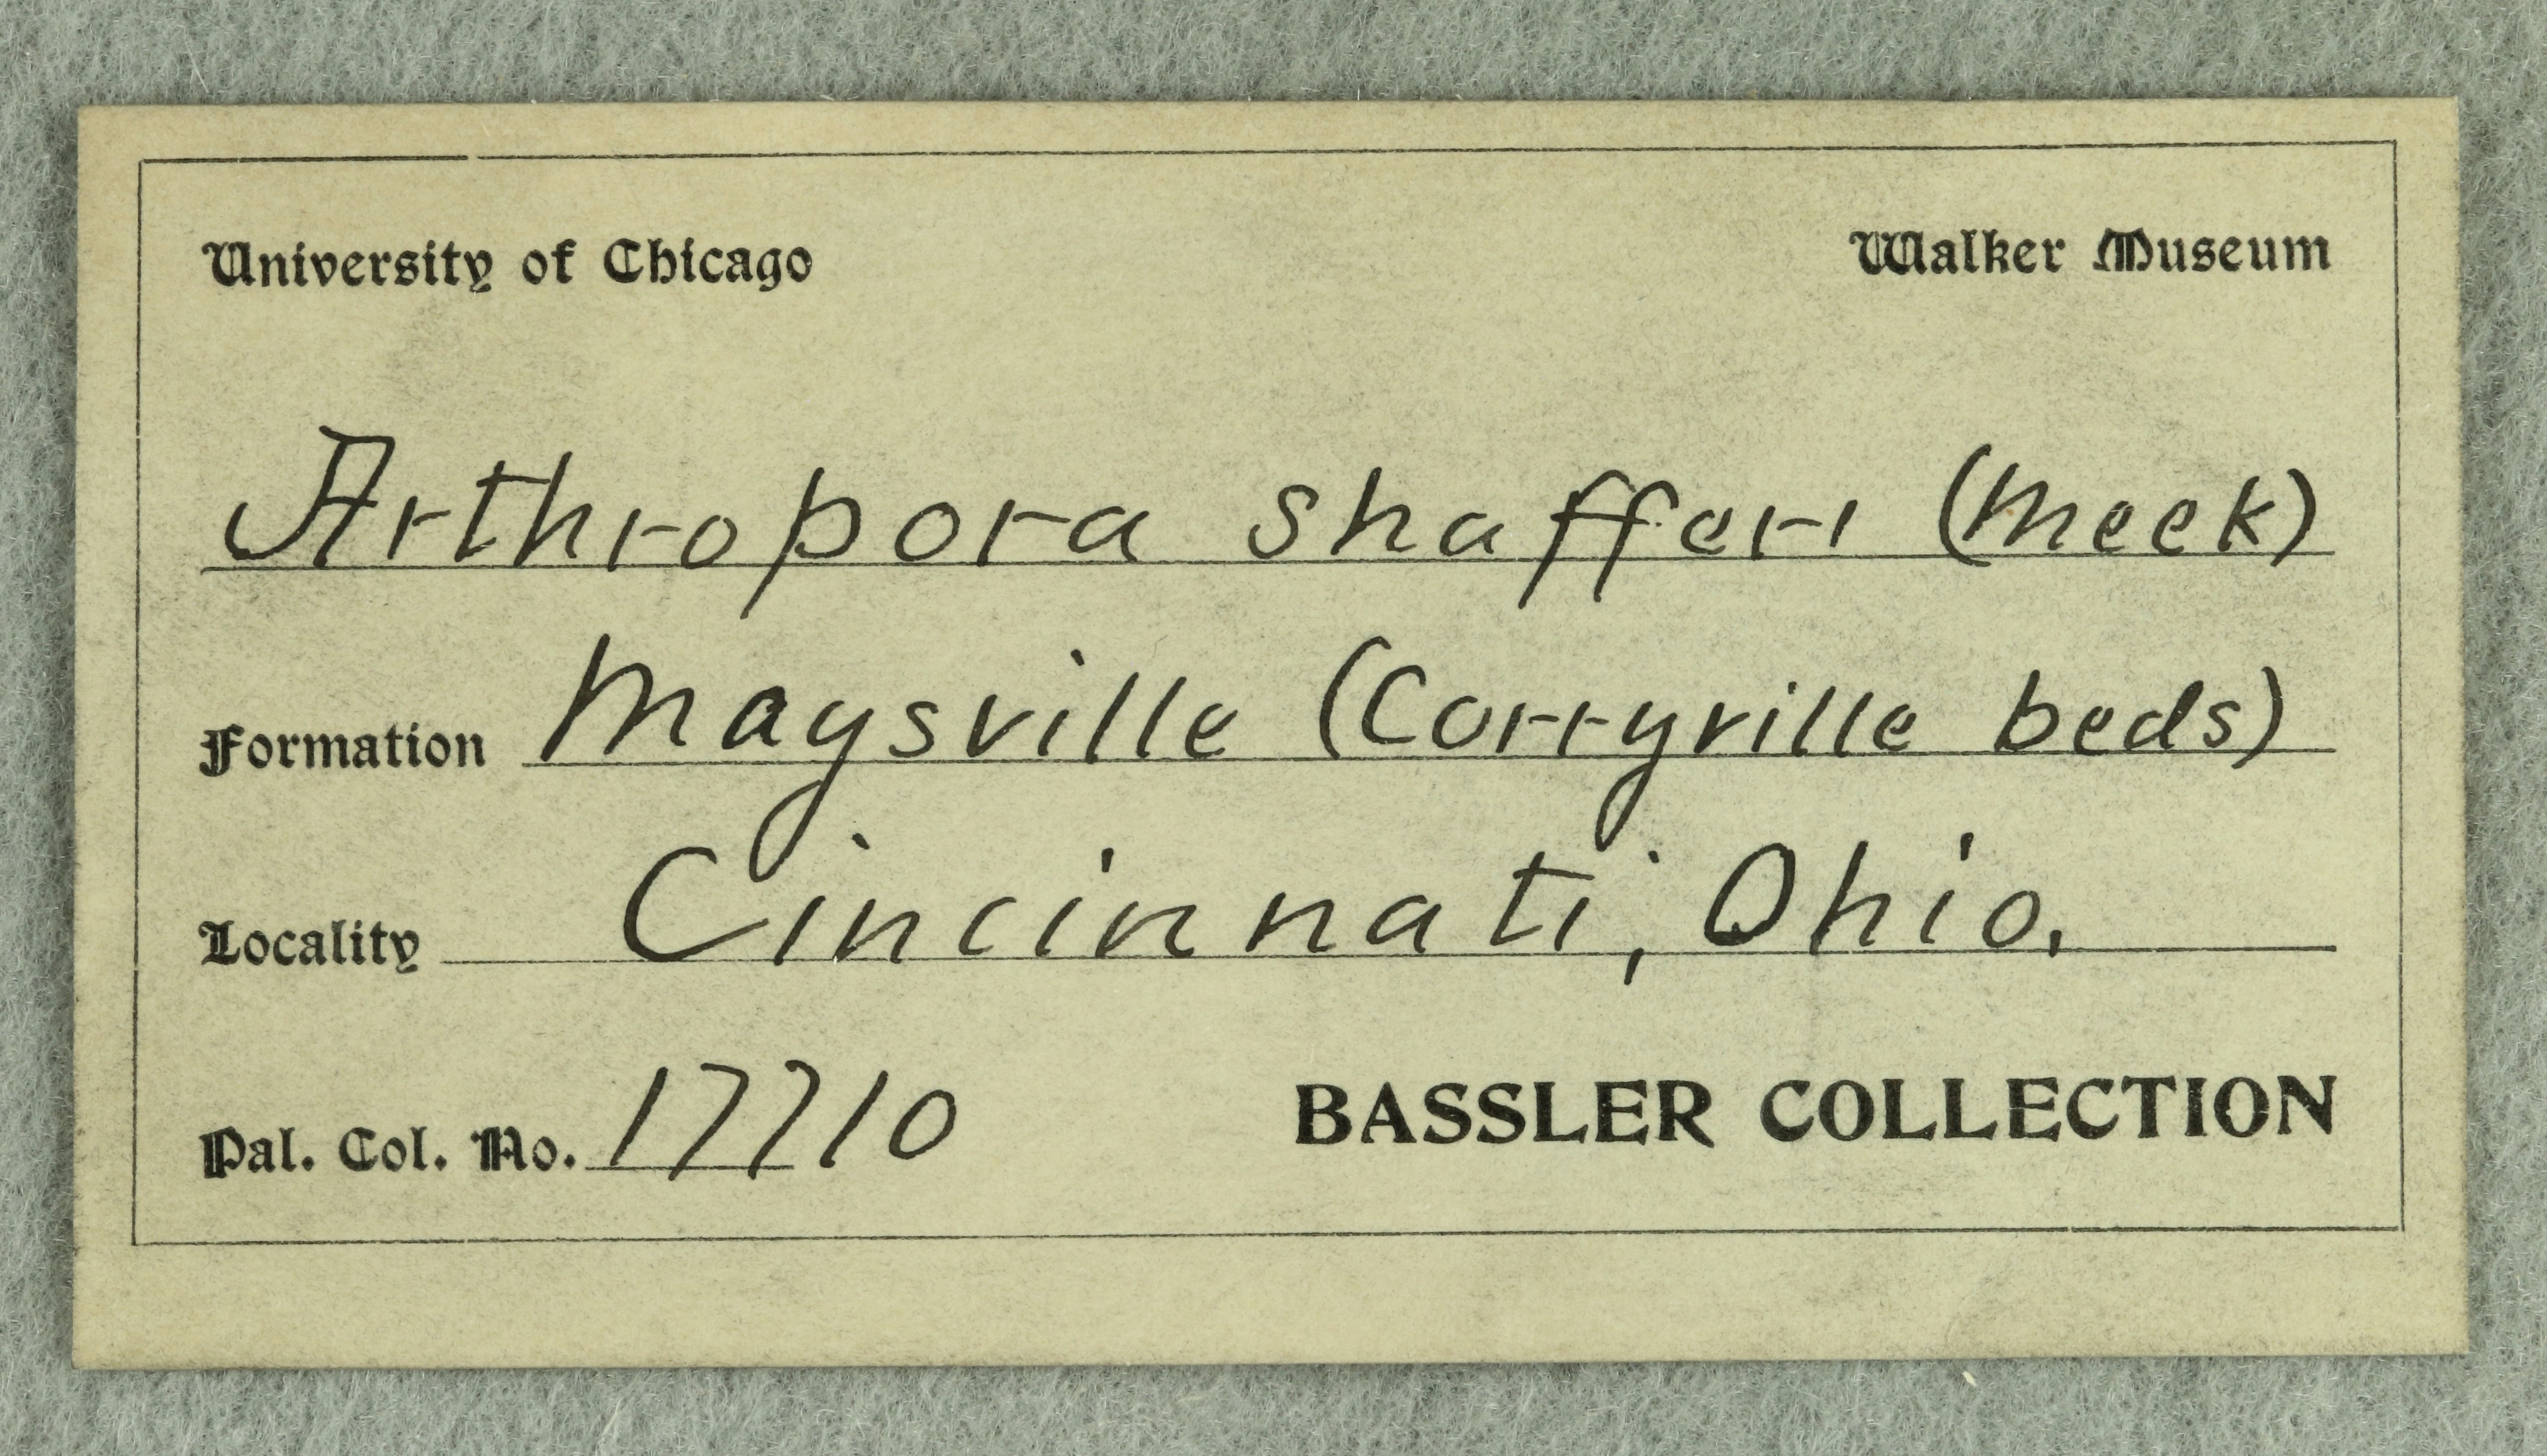 University of Chicago Walker Museum
Arthropora shafferi (Meek)
Formation Maysville (Corryville beds)
Locality Cincinnati, Ohio.
Pal. Col. No. 17710 BASSLER COLLECTION